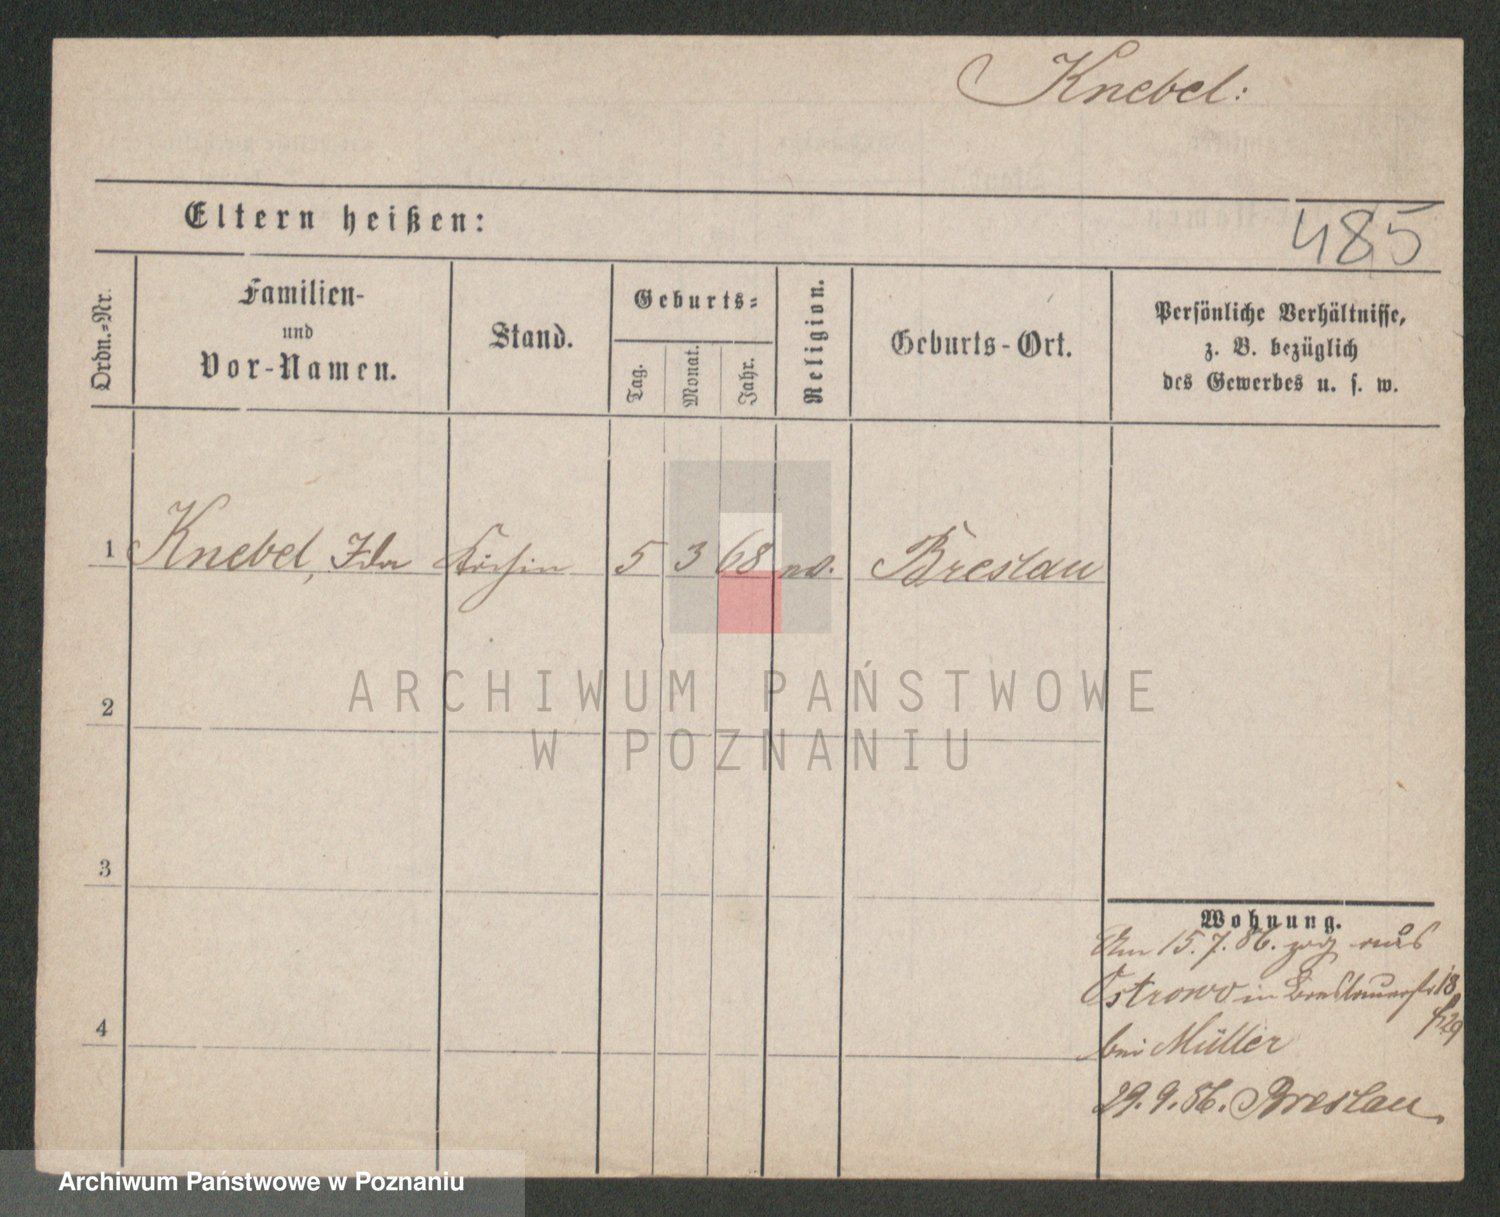 Knebel:
Eltern heißen:
485
Ordn.=Nr.
Familien-
und
Vor-Namen.
Stand.
Geburts=
Tag.
Monat.
Jahr.
Religion.
Geburts-Ort.
Persönliche Verhältnisse,
z. B. bezüglich
des Gewerbes u. s. w.
1 Knebel, Ida Köchin 5 3 68 Breslau
2
3
4
Wohnung.
Am 15.7.86. zog aus
Ostrowo in Breslauerstr 18
29
bei Müller
29.9.86. Breslau
ARCHIWUM PAŃSTWOWE
W POZNANIU
Archiwum Państwowe w Poznaniu